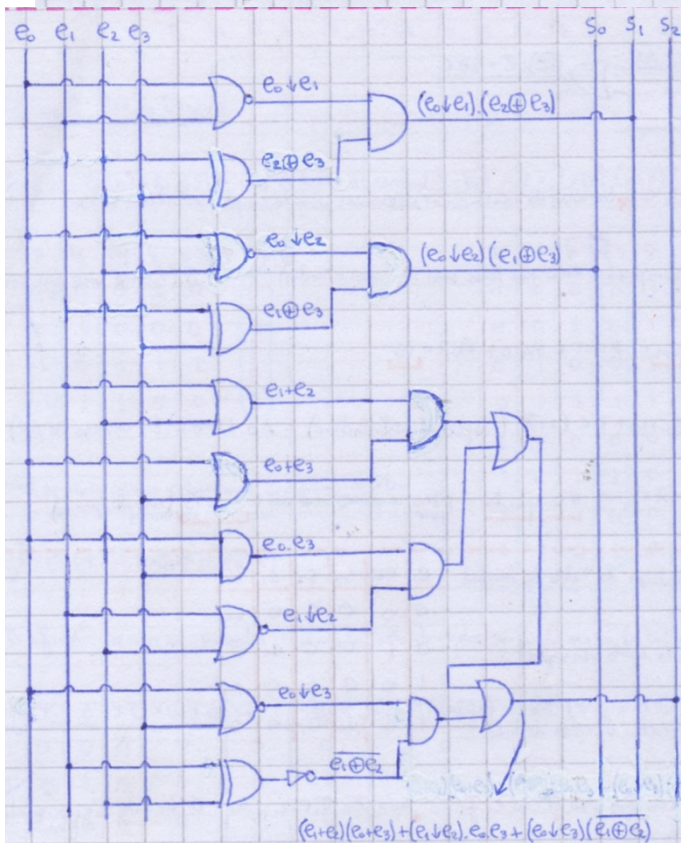 e₀ e₁ e₂ e₃ S₀ S₁ S₂
e₀↓e₁
(e₀↓e₁).(e₂⊕e₃)
e₂⊕e₃
e₀↓e₂
(e₀↓e₂)(e₁⊕e₃)
e₁⊕e₃
e₁+e₂
e₀+e₃
e₀.e₃
e₁↓e₂
e₀↓e₃
\overline{e₁⊕e₂}
(e₁+e₂)(e₀+e₃)+(e₁↓e₂).e₀.e₃+(e₀↓e₃)(\overline{e₁⊕e₂})